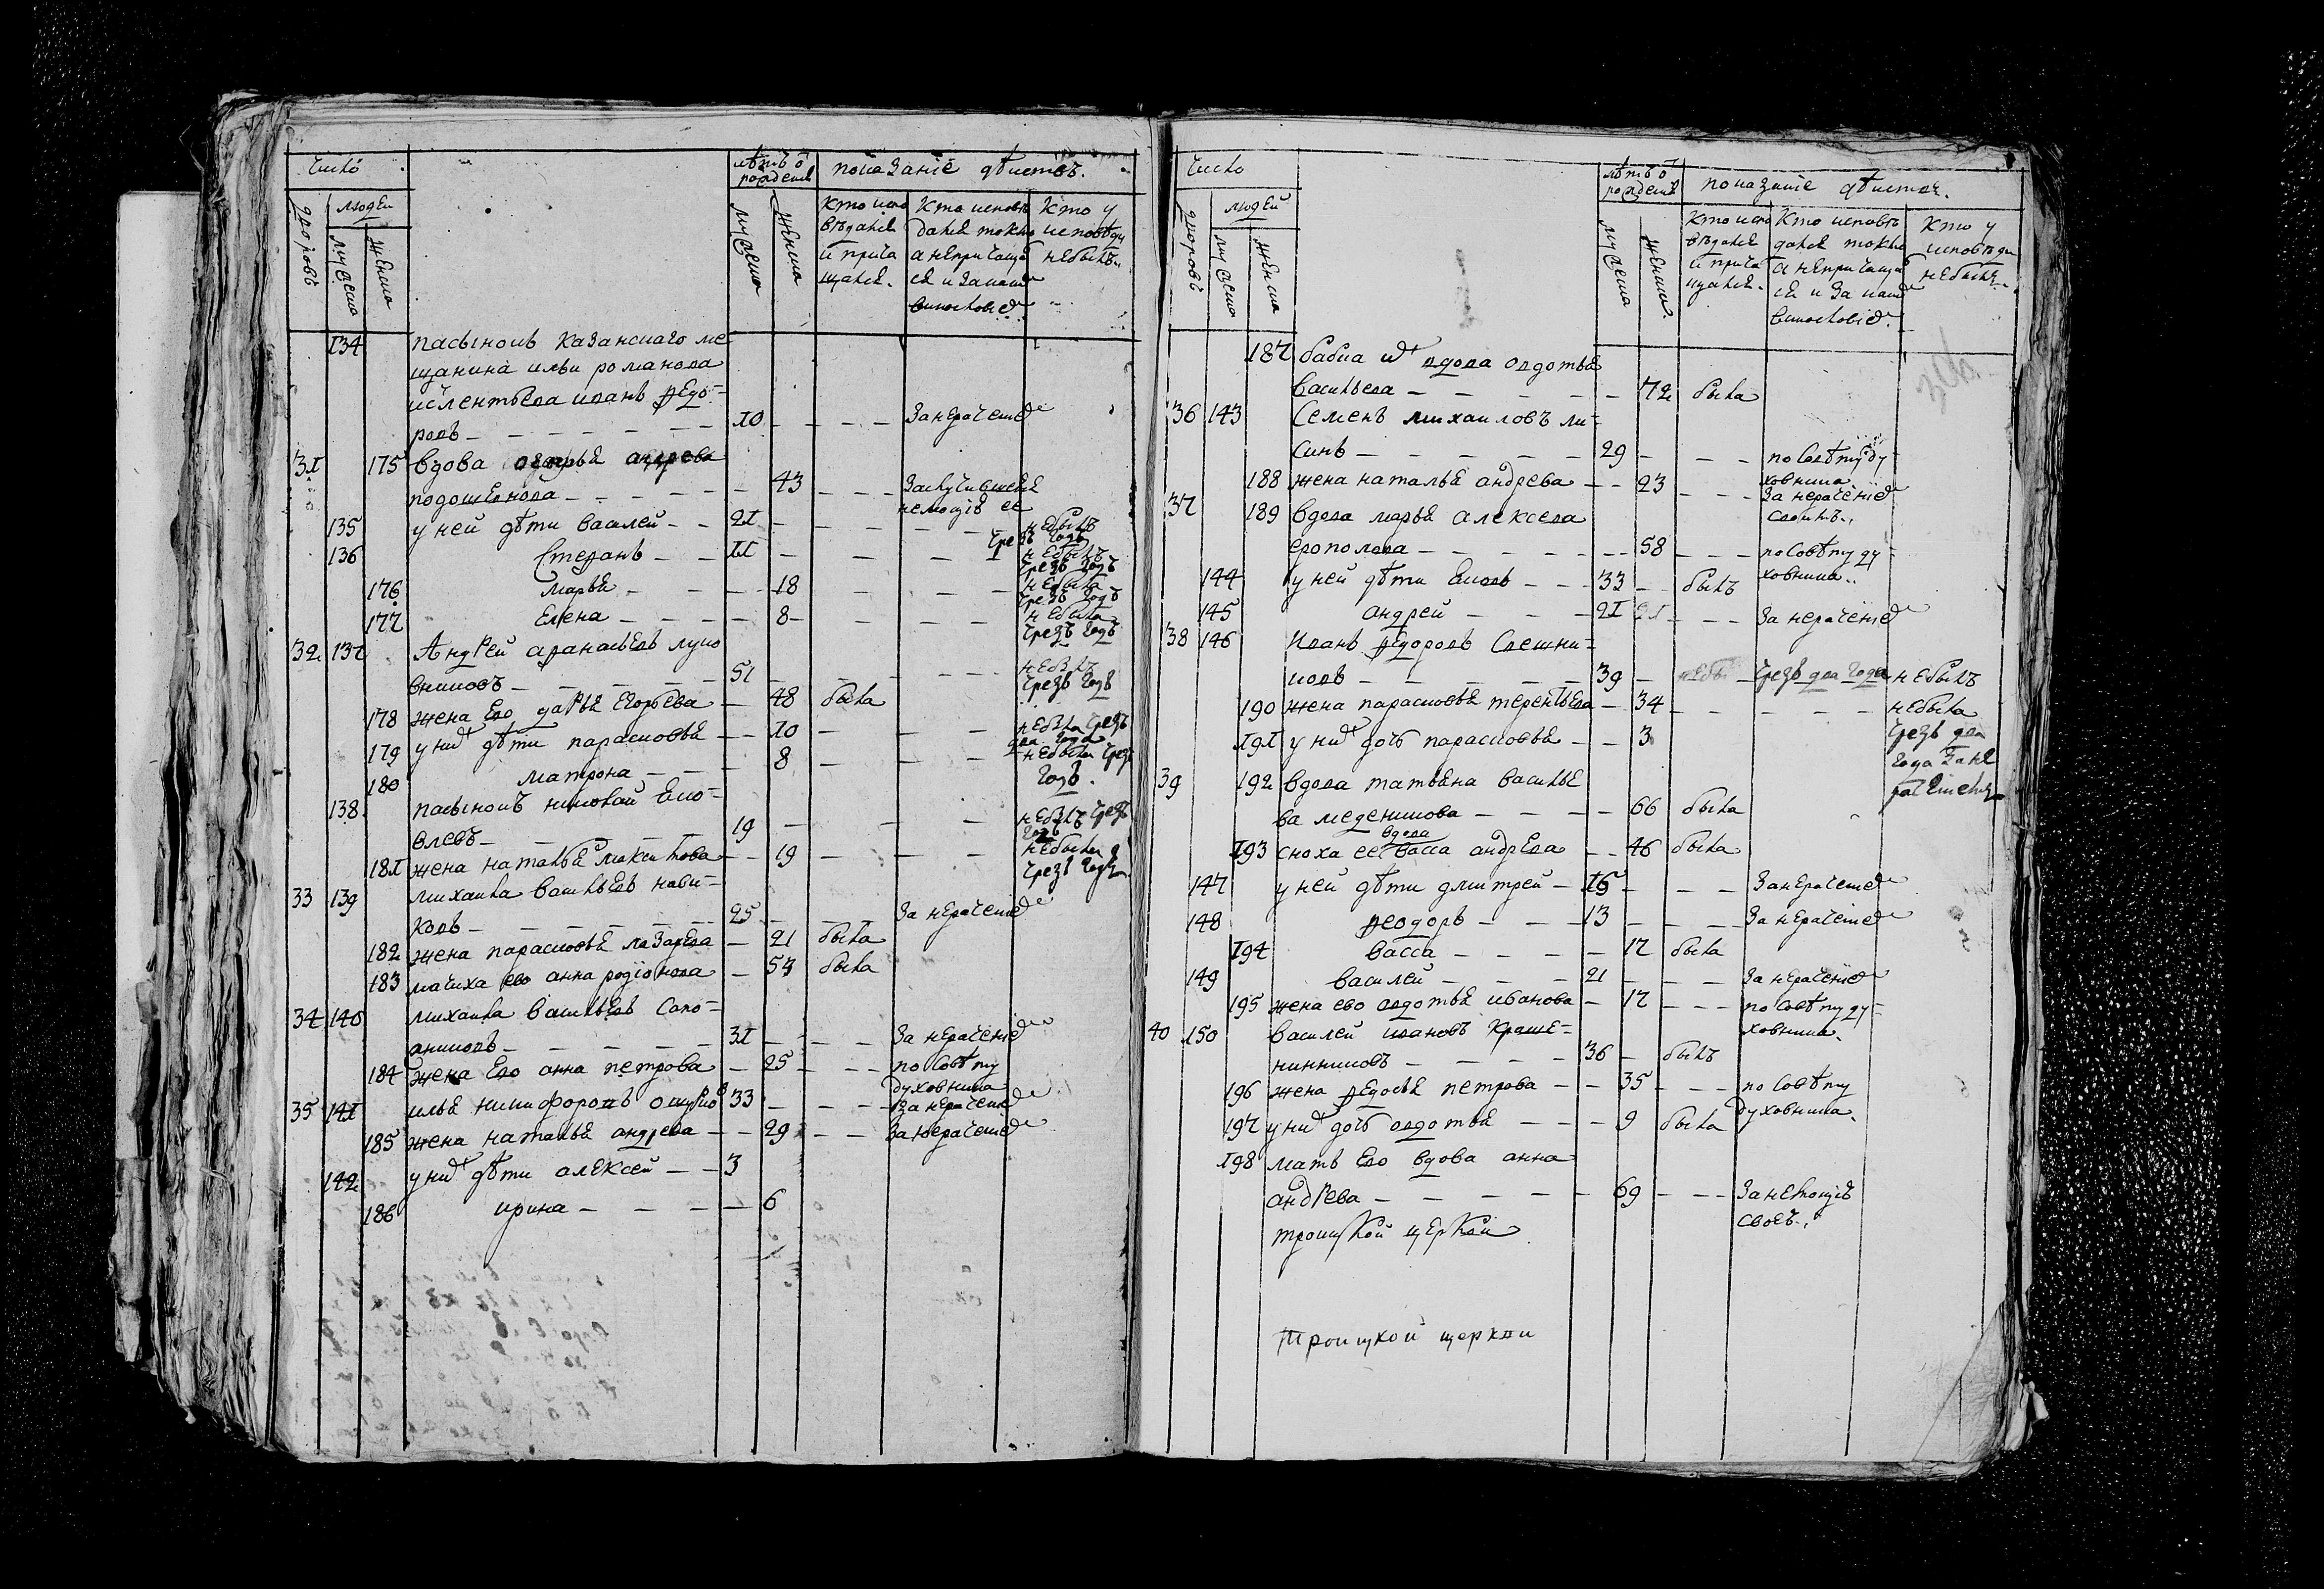 Число
лѣтъ ѿ рожденія
показаніе дѣйствъ.
дворовъ
людей
мужеска
женска
мужеска
женска
кто испо
вѣдался
и прича
щался.
кто исповѣ
дался токмо
а непричаща
ся и закакимъ
винословіемъ
кто у
исповѣди
небылъ
134 пасынокъ казанскаго ме-
щанина ильи романова
иванъ ѳедо-
ровъ 10 за нерачениемъ
31 175 вдова андреева
подошевнова 43 заслучившеюся
немощію ее
135 у ней дѣти василей 21 небылъ
чрезъ годъ
136 степанъ 11 небылъ
чрезъ годъ
176 марья 18 небыла
чрезъ годъ
177 елена 8 небыла
чрезъ годъ
32 137 Андрей аѳанасьевъ луко
вниковъ 51 небылъ
чрезъ годъ
178 жена ево дарья егорьева 48 была
179 у нихъ дѣти парасковья 10 небыла чрезъ
два года
180 матрона 8 небыла чрезъ
годъ.
138 пасынокъ николай яко-
влевъ 19 небылъ чрезъ
годъ
181 жена наталья максимова 19 небыла
чрезъ годъ
33 139 михаила васильевъ нови-
ковъ 25 за нерачениемъ
182 жена парасковья лазарева 21 была
183 мачиха ево анна родіонова 53 была
34 140 михаила васильевъ сапо-
жниковъ 31 за нерачениемъ
184 жена ево анна петрова 25 по совѣту
духовника
35 141 илья никифоровъ 33 за нерачениемъ
185 жена наталья андреева 29 за нерачениемъ
142 у нихъ дѣти алексей 3
186 ирина 6
Число
лѣтъ ѿ рожденія
показаніе дѣйствъ.
дворовъ
людей
мужеска
женска
мужеска
женска
кто испо
вѣдался
и прича
щался.
кто исповѣ
дался токмо
а непричаща
ся и за каким
винословіемъ
кто у
исповѣди
небылъ
187 бабка ихъ вдова авдотья
васильева 72 была
36 143 Семенъ михаиловъ ли-
синъ 29 по совѣту ду-
ховника
188 жена наталья андрева 23 за нерачениемъ
своимъ
37 189 вдова марья алексева
ерополова 58 по совѣту ду-
ховника
144 у ней дѣти яковъ 33 былъ
145 андрей 21 21 за нерачениемъ
38 146 Иванъ ѳедоровъ Свешни-
ковъ 39 небы чрезъ два года небылъ
190 жена парасковья терентьева 34 небыла
191 у нихъ дочь парасковья 3 чрезъ два
года за не
рачениемъ
39 192 вдова татьяна василье
ва меденикова 66 была
вдова
193 сноха ее васса андрева 46 была
147 у ней дѣти дмитрей 15 за нерачениемъ
148 ѳеодоръ 13 за нерачениемъ
194 васса 17 была
149 василей 21 за нерачениемъ
195 жена ево авдотья иванова 17 по совѣту ду-
ховника
40 150 василей ивановъ краше-
нинниковъ 36 былъ
196 жена ѳедосья петрова 35 по совѣту
духовника
197 у нихъ дочь авдотья 9 была
198 мать ево вдова анна
андрева 69 за немощію
своею
троицкой церкви
троицкой церкви